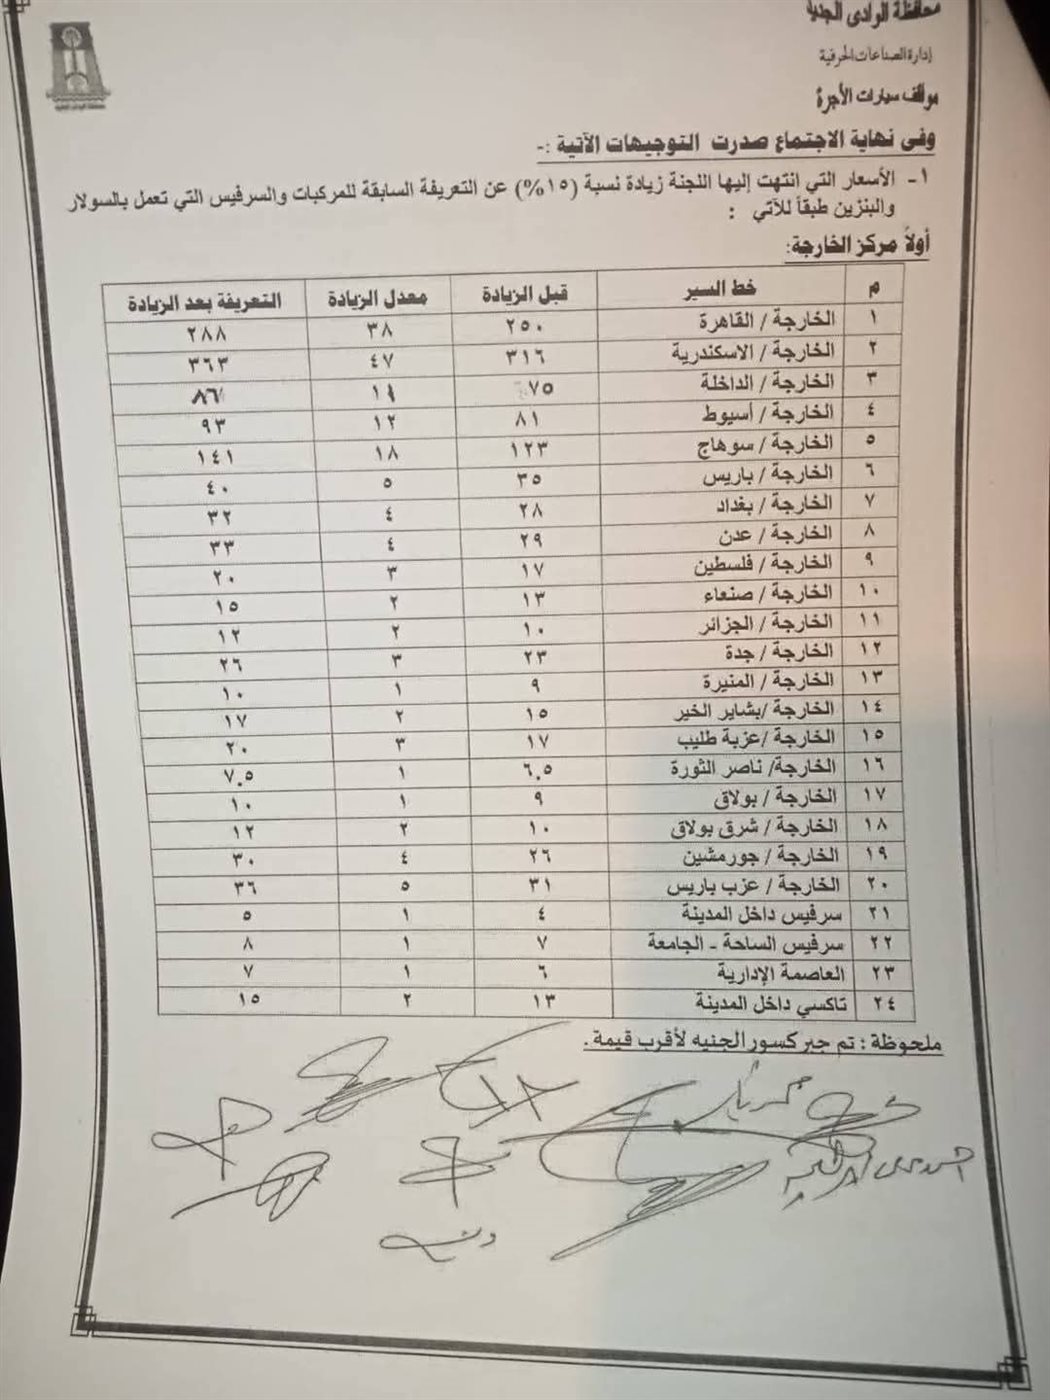 محافظة الوادى الجديد
إدارة الصناعات الحرفية
مواقف سيارات الأجرة
وفى نهاية الاجتماع صدرت التوجيهات الآتية :-
١- الأسعار التي انتهت إليها اللجنة زيادة نسبة (١٥%) عن التعريفة السابقة للمركبات والسرفيس التي تعمل بالسولار
والبنزين طبقاً للآتي :
أولاً مركز الخارجة:
م خط السير قبل الزيادة معدل الزيادة التعريفة بعد الزيادة
١ الخارجة / القاهرة ٢٥٠ ٣٨ ٢٨٨
٢ الخارجة / الاسكندرية ٣١٦ ٤٧ ٣٦٣
٣ الخارجة / الداخلة ٧٥ ١١ ٨٦
٤ الخارجة / أسيوط ٨١ ١٢ ٩٣
٥ الخارجة / سوهاج ١٢٣ ١٨ ١٤١
٦ الخارجة / باريس ٣٥ ٥ ٤٠
٧ الخارجة / بغداد ٢٨ ٤ ٣٢
٨ الخارجة / عدن ٢٩ ٤ ٣٣
٩ الخارجة / فلسطين ١٧ ٣ ٢٠
١٠ الخارجة / صنعاء ١٣ ٢ ١٥
١١ الخارجة / الجزائر ١٠ ٢ ١٢
١٢ الخارجة / جدة ٢٣ ٣ ٢٦
١٣ الخارجة / المنيرة ٩ ١ ١٠
١٤ الخارجة /بشاير الخير ١٥ ٢ ١٧
١٥ الخارجة /عزبة طليب ١٧ ٣ ٢٠
١٦ الخارجة/ ناصر الثورة ٦.٥ ١ ٧.٥
١٧ الخارجة / بولاق ٩ ١ ١٠
١٨ الخارجة / شرق بولاق ١٠ ٢ ١٢
١٩ الخارجة / جورمشين ٢٦ ٤ ٣٠
٢٠ الخارجة / عزب باريس ٣١ ٥ ٣٦
٢١ سرفيس داخل المدينة ٤ ١ ٥
٢٢ سرفيس الساحة - الجامعة ٧ ١ ٨
٢٣ العاصمة الإدارية ٦ ١ ٧
٢٤ تاكسي داخل المدينة ١٣ ٢ ١٥
ملحوظة : تم جبر كسور الجنيه لأقرب قيمة .